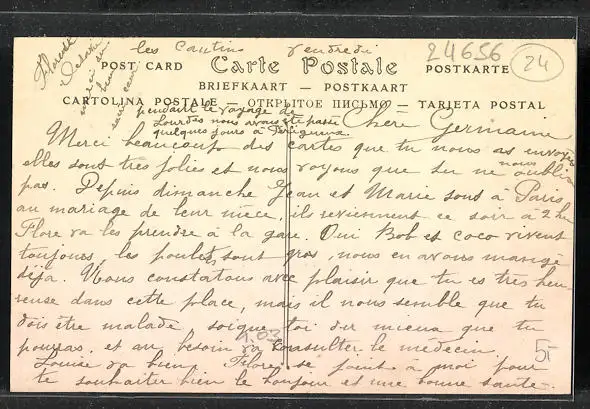 les Cantins vendredi
24656
24
POST CARD Carte Postale POSTKARTE
BRIEFKAART — POSTKAART
CARTOLINA POSTALE — ОТКРЫТОЕ ПИСЬМО — TARJETA POSTAL
pendant le voyage de
Lourdes nous avons été passer
quelques jours à Périgueux
Chère Germaine
Merci beaucoup des cartes que tu nous as envoyées
elles sont très jolies et nous voyons que tu ne nous oublie
pas. Depuis dimanche Jean et Marie sont à Paris
au mariage de leur nièce, ils reviennent ce soir à 2 h
Flore va les prendre à la gare. Oui Bob et coco vivent
toujours, les poulets sont gros, nous en avons mangé
déja. Nous constatons avec plaisir que tu es très heu-
reuse dans cette place, mais il nous semble que tu
dois être malade, soigne toi du mieux que tu
pourras et au besoin va consulter le médecin.
Louise va bien Flore se joint à moi pour
te souhaiter bien le bonjour et une bonne santé.
5-